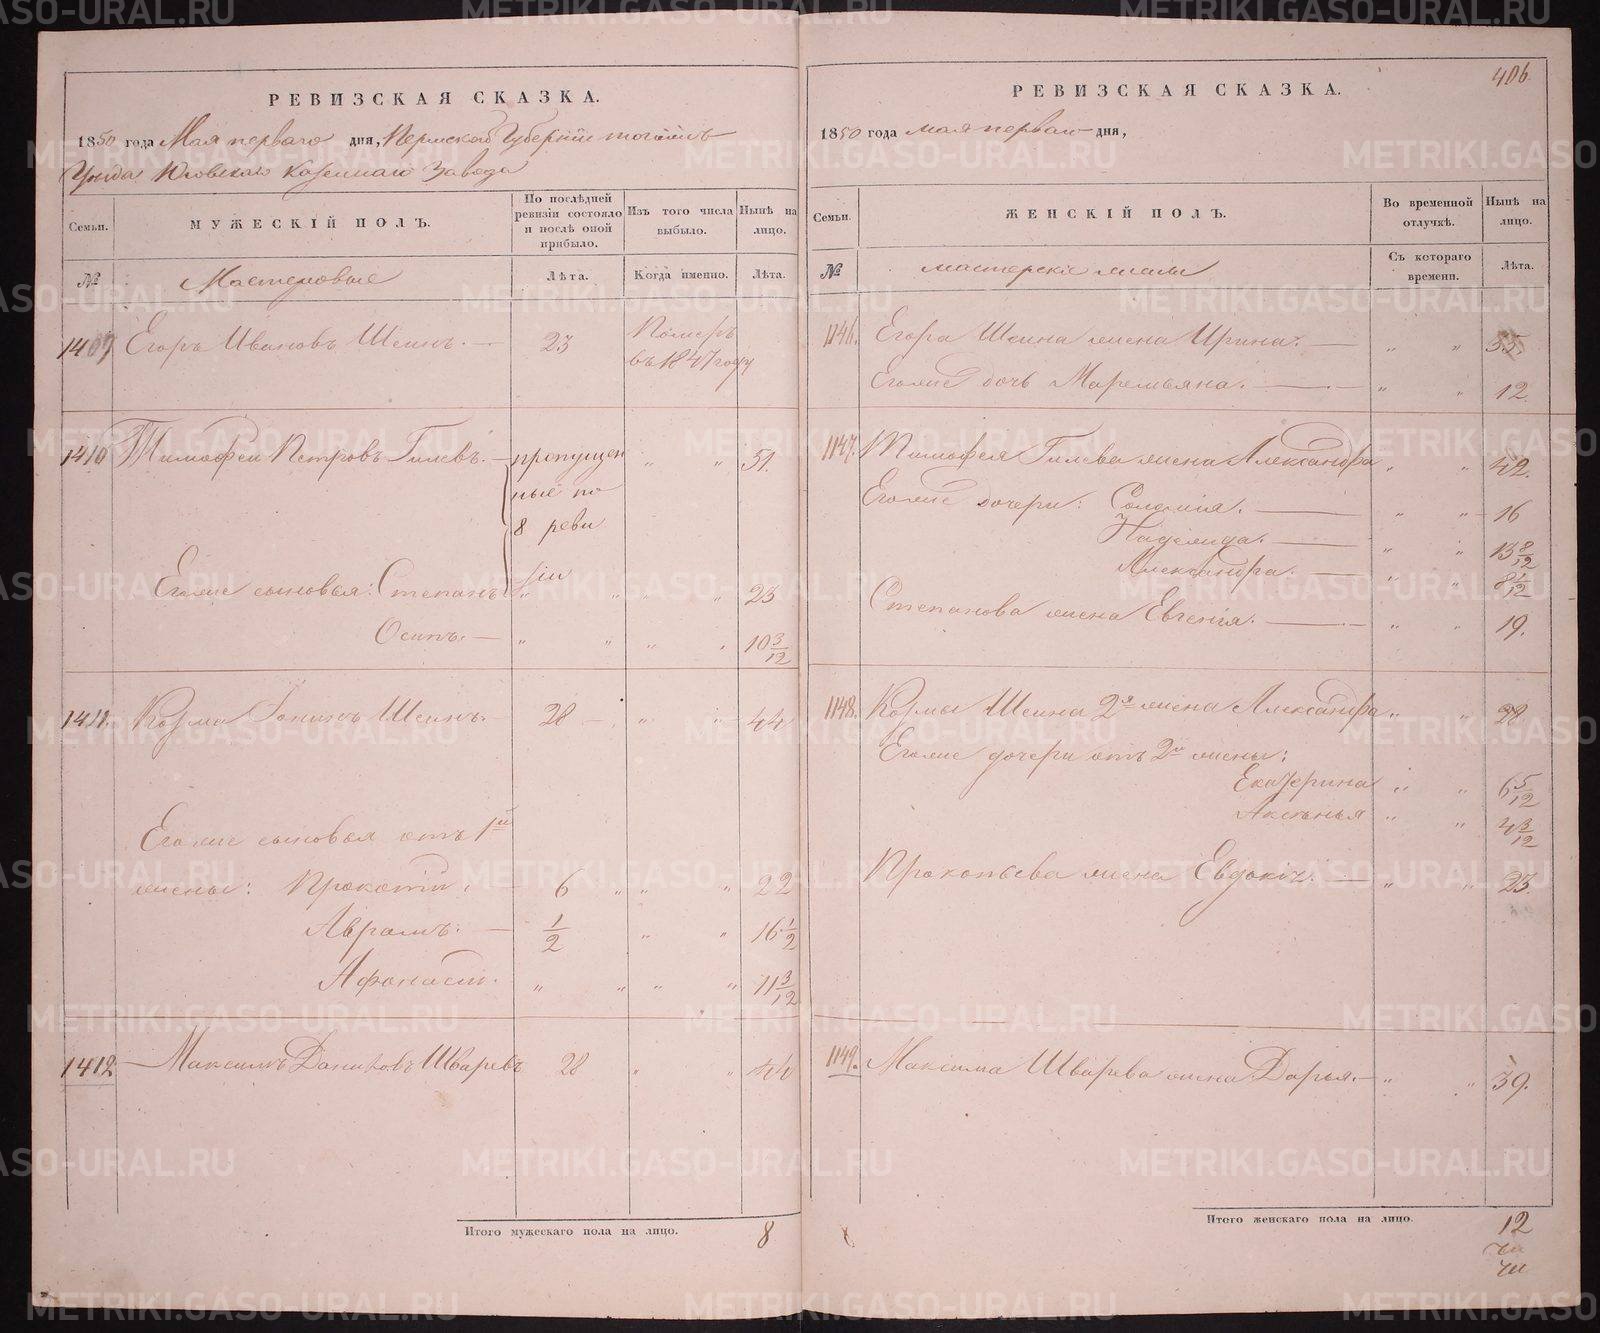 РЕВИЗСКАЯ СКАЗКА.
1850 года Мая перваго дня, Пермской Губернiи тогожъ
Уезда Юговскаго Казеннаго Завода
Семьи.
МУЖЕСКIЙ ПОЛЪ.
По послѣдней ревизiи состояло и послѣ оной прибыло.
Изъ того числа выбыло.
Нынѣ на лицо.
№
Мастеровые
Лѣта.
Когда именно.
Лѣта.
1409 Егоръ Ивановъ Шеинъ. 23 Померъ
въ 1847 году
1410 Тимофеи Петровъ Гилевъ. пропущен " " 51.
ные по
8 реви
зiи
Егоже сыновья: Степанъ " " " " 23
Осипъ. " " " " 10 3/12
1411. Козма Шеинъ. 28 " " 44
Егоже сыновья отъ 1й
жены: Прокопiи. 6 " " " 22
Аврамъ. 1/2 " " 16 1/2
Афонасiи. " " " " 11 3/12
1412 Максимъ Даниловъ Шваревъ 28 " " 44
Итого мужескаго пола на лицо. 8
406.
РЕВИЗСКАЯ СКАЗКА.
1850 года мая перваго дня,
Семьи.
ЖЕНСКIЙ ПОЛЪ.
Во временной отлучкѣ.
Нынѣ на лицо.
№
мастерскiе жены
Съ котораго времени.
Лѣта.
1146. Егора Шеина жена Ирина. " " 35.
Егоже дочь Маремьяна. " " 12.
1147. Тимофея Гилева жена Александра " " 42.
Егоже дочери: Соломiя. " " 16
Надежида. " " 13 8/12
Александра. " " 8 1/12
Степанова жена Евгенiя. " " 19.
1148. Козмы Шеина 2я жена Александра " " 28
Егоже дочери отъ 2й жены:
Екатерина " " 6 5/12
Аксинья " " 4 3/12
Прокопьева жена Евдокiя. " " 23.
1149. Максима Шварева жена Дарья. " " 39.
Итого женскаго пола на лицо. 12
METRIKI.GASO-URAL.RU